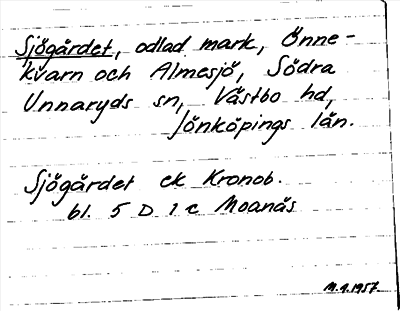 Sjögärdet, odlad mark, Önne-
kvarn och Almesjö, Södra
Unnaryds sn, Västbo hd,
Jönköpings län.
Sjögärdet ek Kronob.
bl. 5 D 1 c Moanäs
M.A.1957